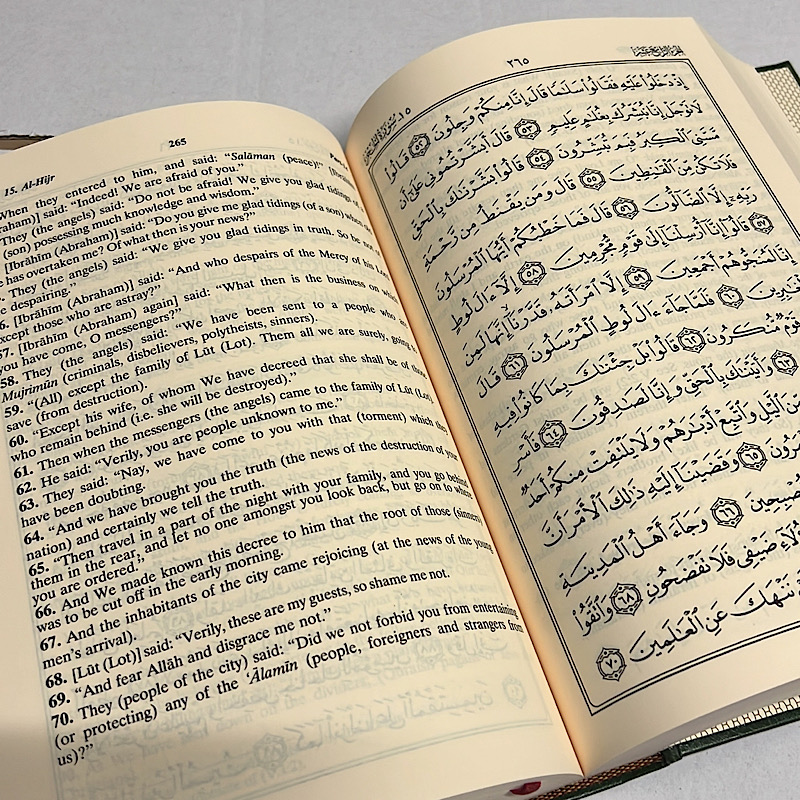 265
15. Al-Hijr
When they entered to him, and said: “Salâman (peace)!”
raham)] said: “Indeed! We are afraid of you.”
They (the angels) said: “Do not be afraid! We give you glad tidings of
(son) possessing much knowledge and wisdom.”
[Ibrâhîm (Abraham)] said: “Do you give me glad tidings (of a son) when
has overtaken me? Of what then is your news?”
They (the angels) said: “We give you glad tidings in truth. So be not
despairing.”
[Ibrâhîm (Abraham)] said: “And who despairs of the Mercy of his Lord
xcept those who are astray?”
57. [Ibrâhîm (Abraham) again] said: “What then is the business on which
you have come, O messengers?”
58. They (the angels) said: “We have been sent to a people who are
Mujrimûn (criminals, disbelievers, polytheists, sinners).
59. “(All) except the family of Lût (Lot). Them all we are surely, going
save (from destruction).
60. “Except his wife, of whom We have decreed that she shall be of those
who remain behind (i.e. she will be destroyed).”
61. Then when the messengers (the angels) came to the family of Lût (Lot)
62. He said: “Verily, you are people unknown to me.”
63. They said: “Nay, we have come to you with that (torment) which they
have been doubting.
64. “And we have brought you the truth (the news of the destruction of your
nation) and certainly we tell the truth.
65. “Then travel in a part of the night with your family, and you go behind
them in the rear, and let no one amongst you look back, but go on to where
you are ordered.”
66. And We made known this decree to him that the root of those (sinners)
was to be cut off in the early morning.
67. And the inhabitants of the city came rejoicing (at the news of the young
men’s arrival).
68. [Lût (Lot)] said: “Verily, these are my guests, so shame me not.
69. “And fear Allâh and disgrace me not.”
70. They (people of the city) said: “Did we not forbid you from entertaining
(or protecting) any of the ‘Âlamîn (people, foreigners and strangers from
us)?”
٢٦٥
إِذْ دَخَلُوا۟ عَلَيْهِ فَقَالُوا۟ سَلَٰمًا قَالَ إِنَّا مِنكُمْ وَجِلُونَ ٥٢ قَالُوا۟
لَا تَوْجَلْ إِنَّا نُبَشِّرُكَ بِغُلَٰمٍ عَلِيمٍ ٥٣ قَالَ أَبَشَّرْتُمُونِى عَلَىٰٓ أَن
مَّسَّنِىَ ٱلْكِبَرُ فَبِمَ تُبَشِّرُونَ ٥٤ قَالُوا۟ بَشَّرْنَٰكَ بِٱلْحَقِّ
فَلَا تَكُن مِّنَ ٱلْقَٰنِطِينَ ٥٥ قَالَ وَمَن يَقْنَطُ مِن رَّحْمَةِ
رَبِّهِۦٓ إِلَّا ٱلضَّآلُّونَ ٥٦ قَالَ فَمَا خَطْبُكُمْ أَيُّهَا ٱلْمُرْسَلُونَ
٥٧ قَالُوٓا۟ إِنَّآ أُرْسِلْنَآ إِلَىٰ قَوْمٍ مُّجْرِمِينَ ٥٨ إِلَّآ ءَالَ لُوطٍ
إِنَّا لَمُنَجُّوهُمْ أَجْمَعِينَ ٥٩ إِلَّا ٱمْرَأَتَهُۥ قَدَّرْنَآ إِنَّهَا لَمِنَ
٦٠ فَلَمَّا جَآءَ ءَالَ لُوطٍ ٱلْمُرْسَلُونَ ٦١ قَالَ
قَوْمٌ مُّنكَرُونَ ٦٢ قَالُوا۟ بَلْ جِئْنَٰكَ بِمَا كَانُوا۟ فِيهِ
٦٣ وَأَتَيْنَٰكَ بِٱلْحَقِّ وَإِنَّا لَصَٰدِقُونَ ٦٤ فَأَسْرِ
مِّنَ ٱلَّيْلِ وَٱتَّبِعْ أَدْبَٰرَهُمْ وَلَا يَلْتَفِتْ مِنكُمْ أَحَدٌ
٦٥ وَقَضَيْنَآ إِلَيْهِ ذَٰلِكَ ٱلْأَمْرَ أَنَّ
٦٦ وَجَآءَ أَهْلُ ٱلْمَدِينَةِ
ضَيْفِى فَلَا تَفْضَحُونِ ٦٨ وَٱتَّقُوا۟
نَنْهَكَ عَنِ ٱلْعَٰلَمِينَ ٧٠